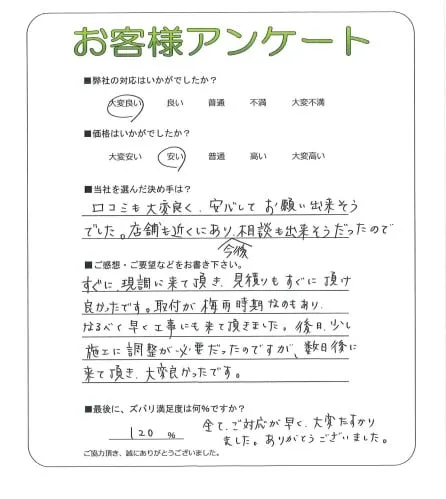 お客様アンケート
■弊社の対応はいかがでしたか？
大変良い 良い 普通 不満 大変不満
■価格はいかがでしたか？
大変安い 安い 普通 高い 大変高い
■当社を選んだ決め手は？
口コミも大変良く、安心してお願い出来そう
でした。店舗も近くにあり、今後相談も出来そうだったので
■ご感想・ご要望などをお書き下さい。
すぐに、現調に来て頂き、見積りもすぐに頂け
良かったです。取付が梅雨時期なのもあり、
なるべく早く工事にも来て頂きました。後日、少し
施工に調整が必要だったのですが、数日後に
来て頂き、大変良かったです。
■最後に、ズバリ満足度は何％ですか？
120 %
全て、ご対応が早く、大変たすかり
ました。ありがとうございました。
ご協力頂き、誠にありがとうございました。